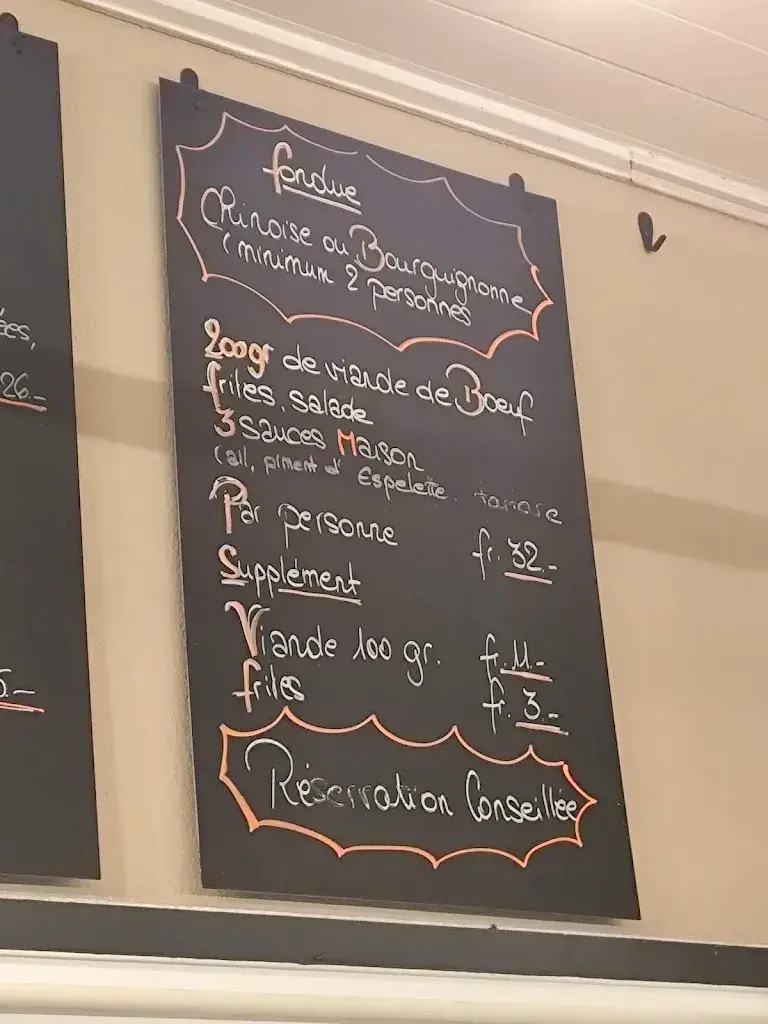 ées,
26.-
5.-
fondue
Chinoise ou Bourguignonne
(minimum 2 personnes
200gr de viande de Boeuf
frites, salade
3 sauces Maison
(ail, piment d' Espelette. tartare
Par personne fr. 32.-
Supplément
Viande 100 gr. fr. 11.-
frites fr. 3.-
Réservation Conseillée